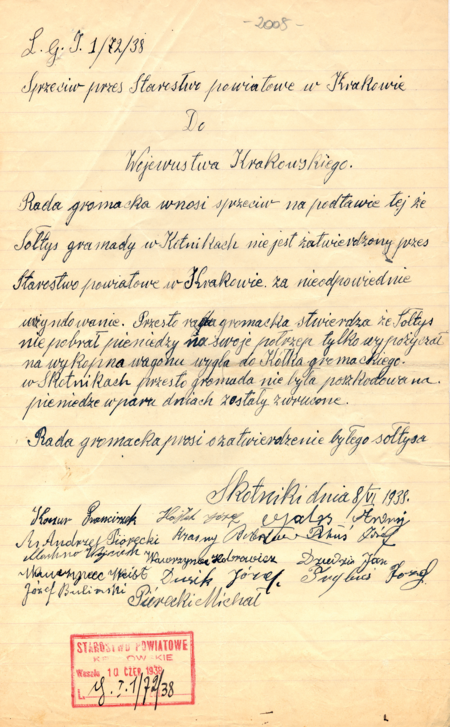 -2008-
L. G. I. 1/72/38
Sprzeciw przes Starostwo powiatowe w Krakowie
Do
Wojewustwa Krakowskiego.
Rada gromacka wnosi sprzeciw na podstawie tej że
Sołtys gramady w Kotnikach nie jest zatwierdzony przes
Starostwo powiatowe w Krakowie za nieodpowiednie
użyndowanie. Przesto rada gromacka stwierdza że Sołtys
nie pobrał pieniedzy na swoje potrzep tylko wypożyczał
na wykop na wagonu wygla do Kółka gromackiego.
w Skotnikach przesto gromada nie była poszkodowana.
pieniedze w paru dniach zostały zwrucone.
Rada gromacka prosi o zatwierdzenie byłego sołtysa
Skotniki dnia 8/VI 1938.
Franciszek Józef Andrzej
Andrzej Piórecki Krasny Józef
Wojciech Wawrzyniec Jan
Dusik Józef Frybus Józef
Józef Buliński Piórecki Michał
STAROSTWO POWIATOWE
KRAKOWSKIE
10 CZER. 1938
L. G. I. 1/72/38